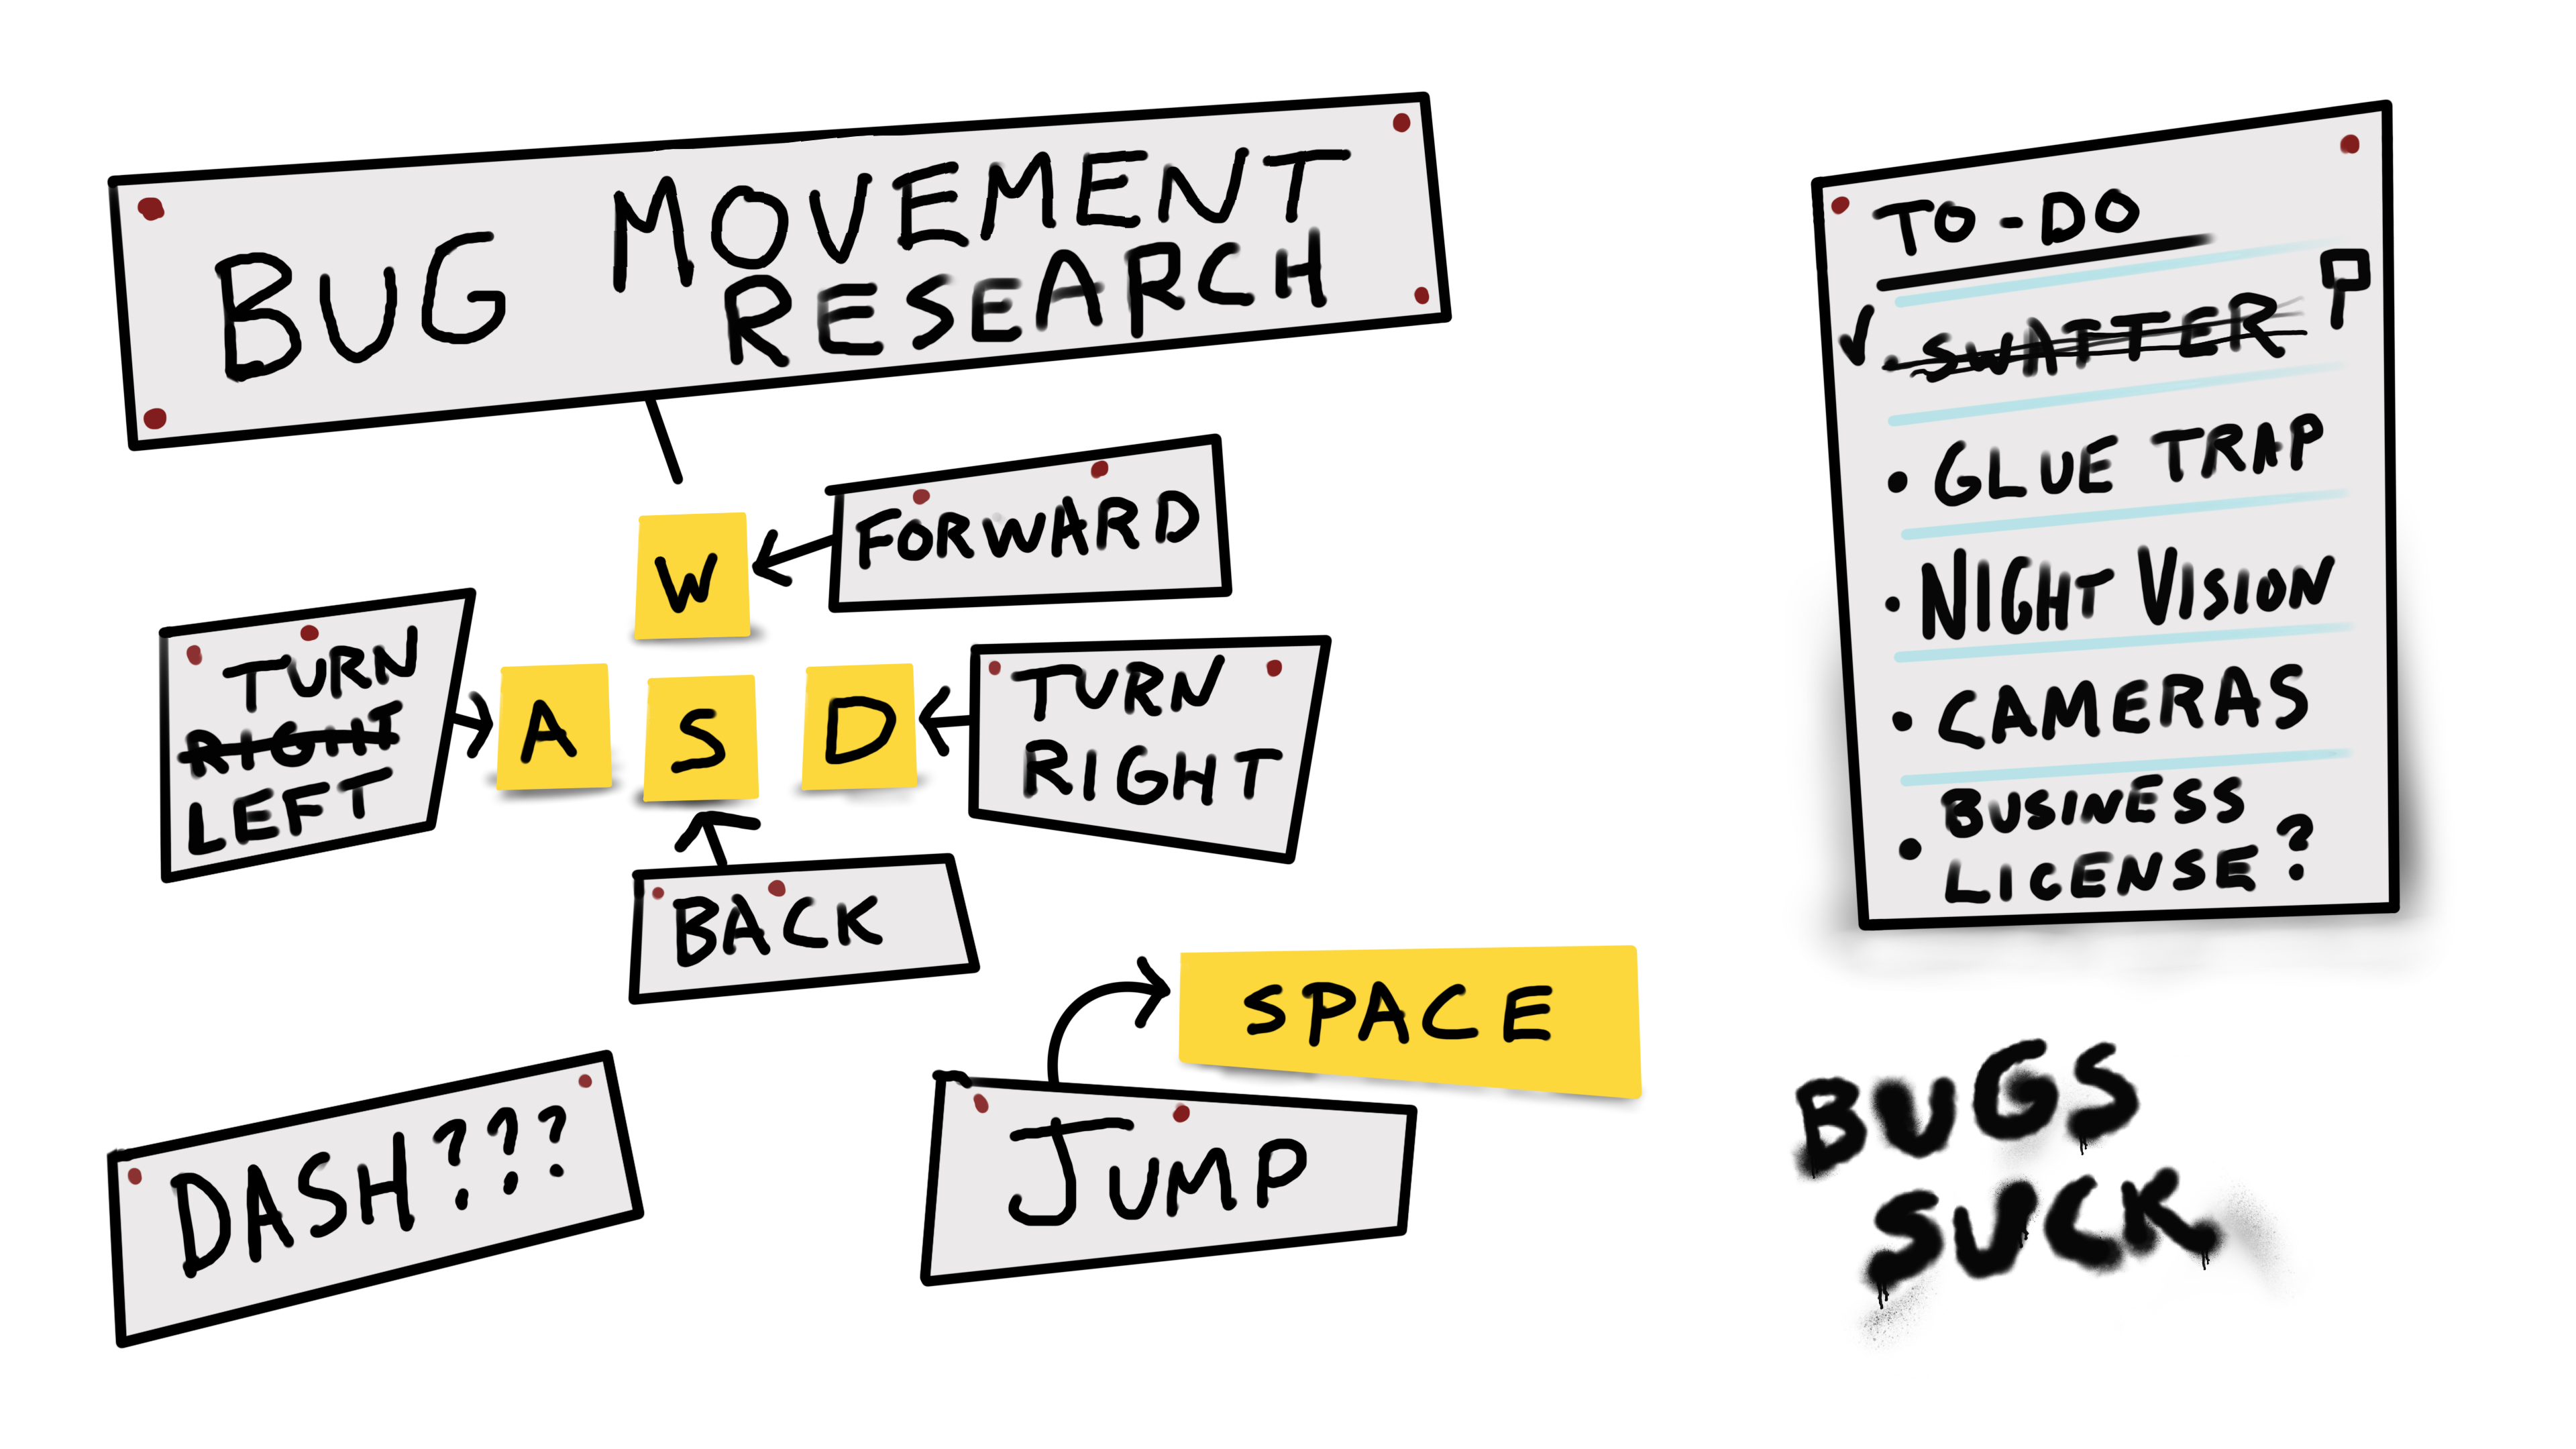 BUG MOVEMENT
RESEARCH
W
FORWARD
TURN
RIGHT
LEFT
A
S
D
TURN
RIGHT
BACK
SPACE
JUMP
DASH???
TO-DO
✓ • SWATTER
• GLUE TRAP
• NIGHT VISION
• CAMERAS
• BUSINESS
LICENSE?
BUGS
SUCK